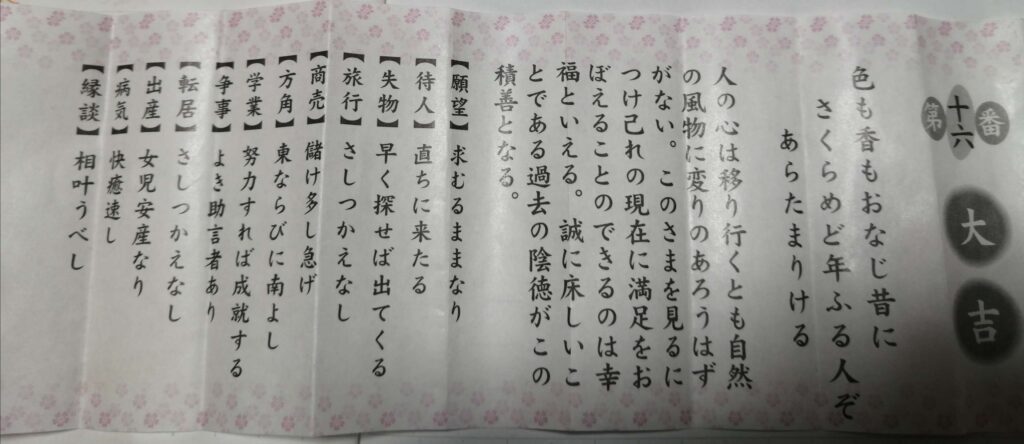 第十六番
大吉
色も香もおなじ昔に
さくらめど年ふる人ぞ
あらたまりける
人の心は移り行くとも自然
の風物に変りのあろうはず
がない。このさまを見るに
つけ己れの現在に満足をお
ぼえることのできるのは幸
福といえる。誠に床しいこ
とである過去の陰徳がこの
積善となる。
【願望】求むるままなり
【待人】直ちに来たる
【失物】早く探せば出てくる
【旅行】さしつかえなし
【商売】儲け多し急げ
【方角】東ならびに南よし
【学業】努力すれば成就する
【争事】よき助言者あり
【転居】さしつかえなし
【出産】女児安産なり
【病気】快癒速し
【縁談】相叶うべし